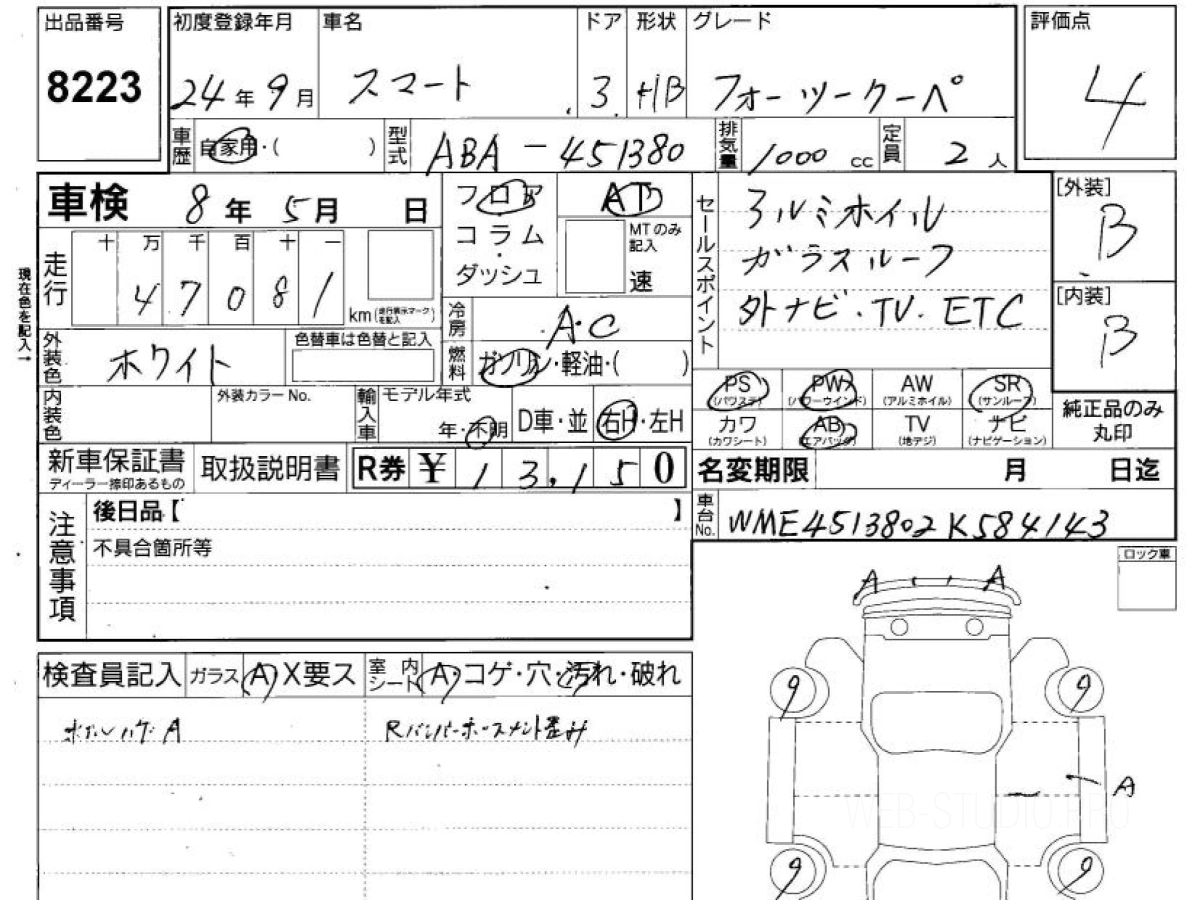 出品番号 初度登録年月 車名 ドア 形状 グレード 評価点
8223 24年9月 スマート 3 HB フォーツークーペ 4
車歴 自家用・( ) 型式 ABA-451380 排気量 1000cc 定員 2人
車検 8年5月 日 フロア AT セールスポイント アルミホイル [外装]
コラム・ MTのみ記入 ガラスルーフ B
十 万 千 百 十 一 ダッシュ 速 外ナビ・TV・ETC [内装]
走行 47081 km(走行表示マークを記入) 冷房 A・C B
現在色を記入→
外装色 ホワイト 色替車は色替と記入 燃料 ガソリン・軽油・( )
PS(パワステ) PW(パワーウインド) AW(アルミホイル) SR(サンルーフ) 純正品のみ丸印
内装色 外装カラーNo. 輸入車 モデル年式 年・不明 D車・並 右H・左H
カワ(カワシート) AB(エアバッグ) TV(地デジ) ナビ(ナビゲーション)
新車保証書 ディーラー捺印あるもの 取扱説明書 R券 ¥ 13,150 名変期限 月 日迄
注意事項 後日品【 】 車台No. WME4513802K584143
不具合箇所等 ロック車
A A
検査員記入 ガラス A・X要ス 室内シート A・コゲ・穴・汚れ・破れ
Rバンパーホースメント歪み
9 9
A
WEB-STUDIO.PRO
9 9